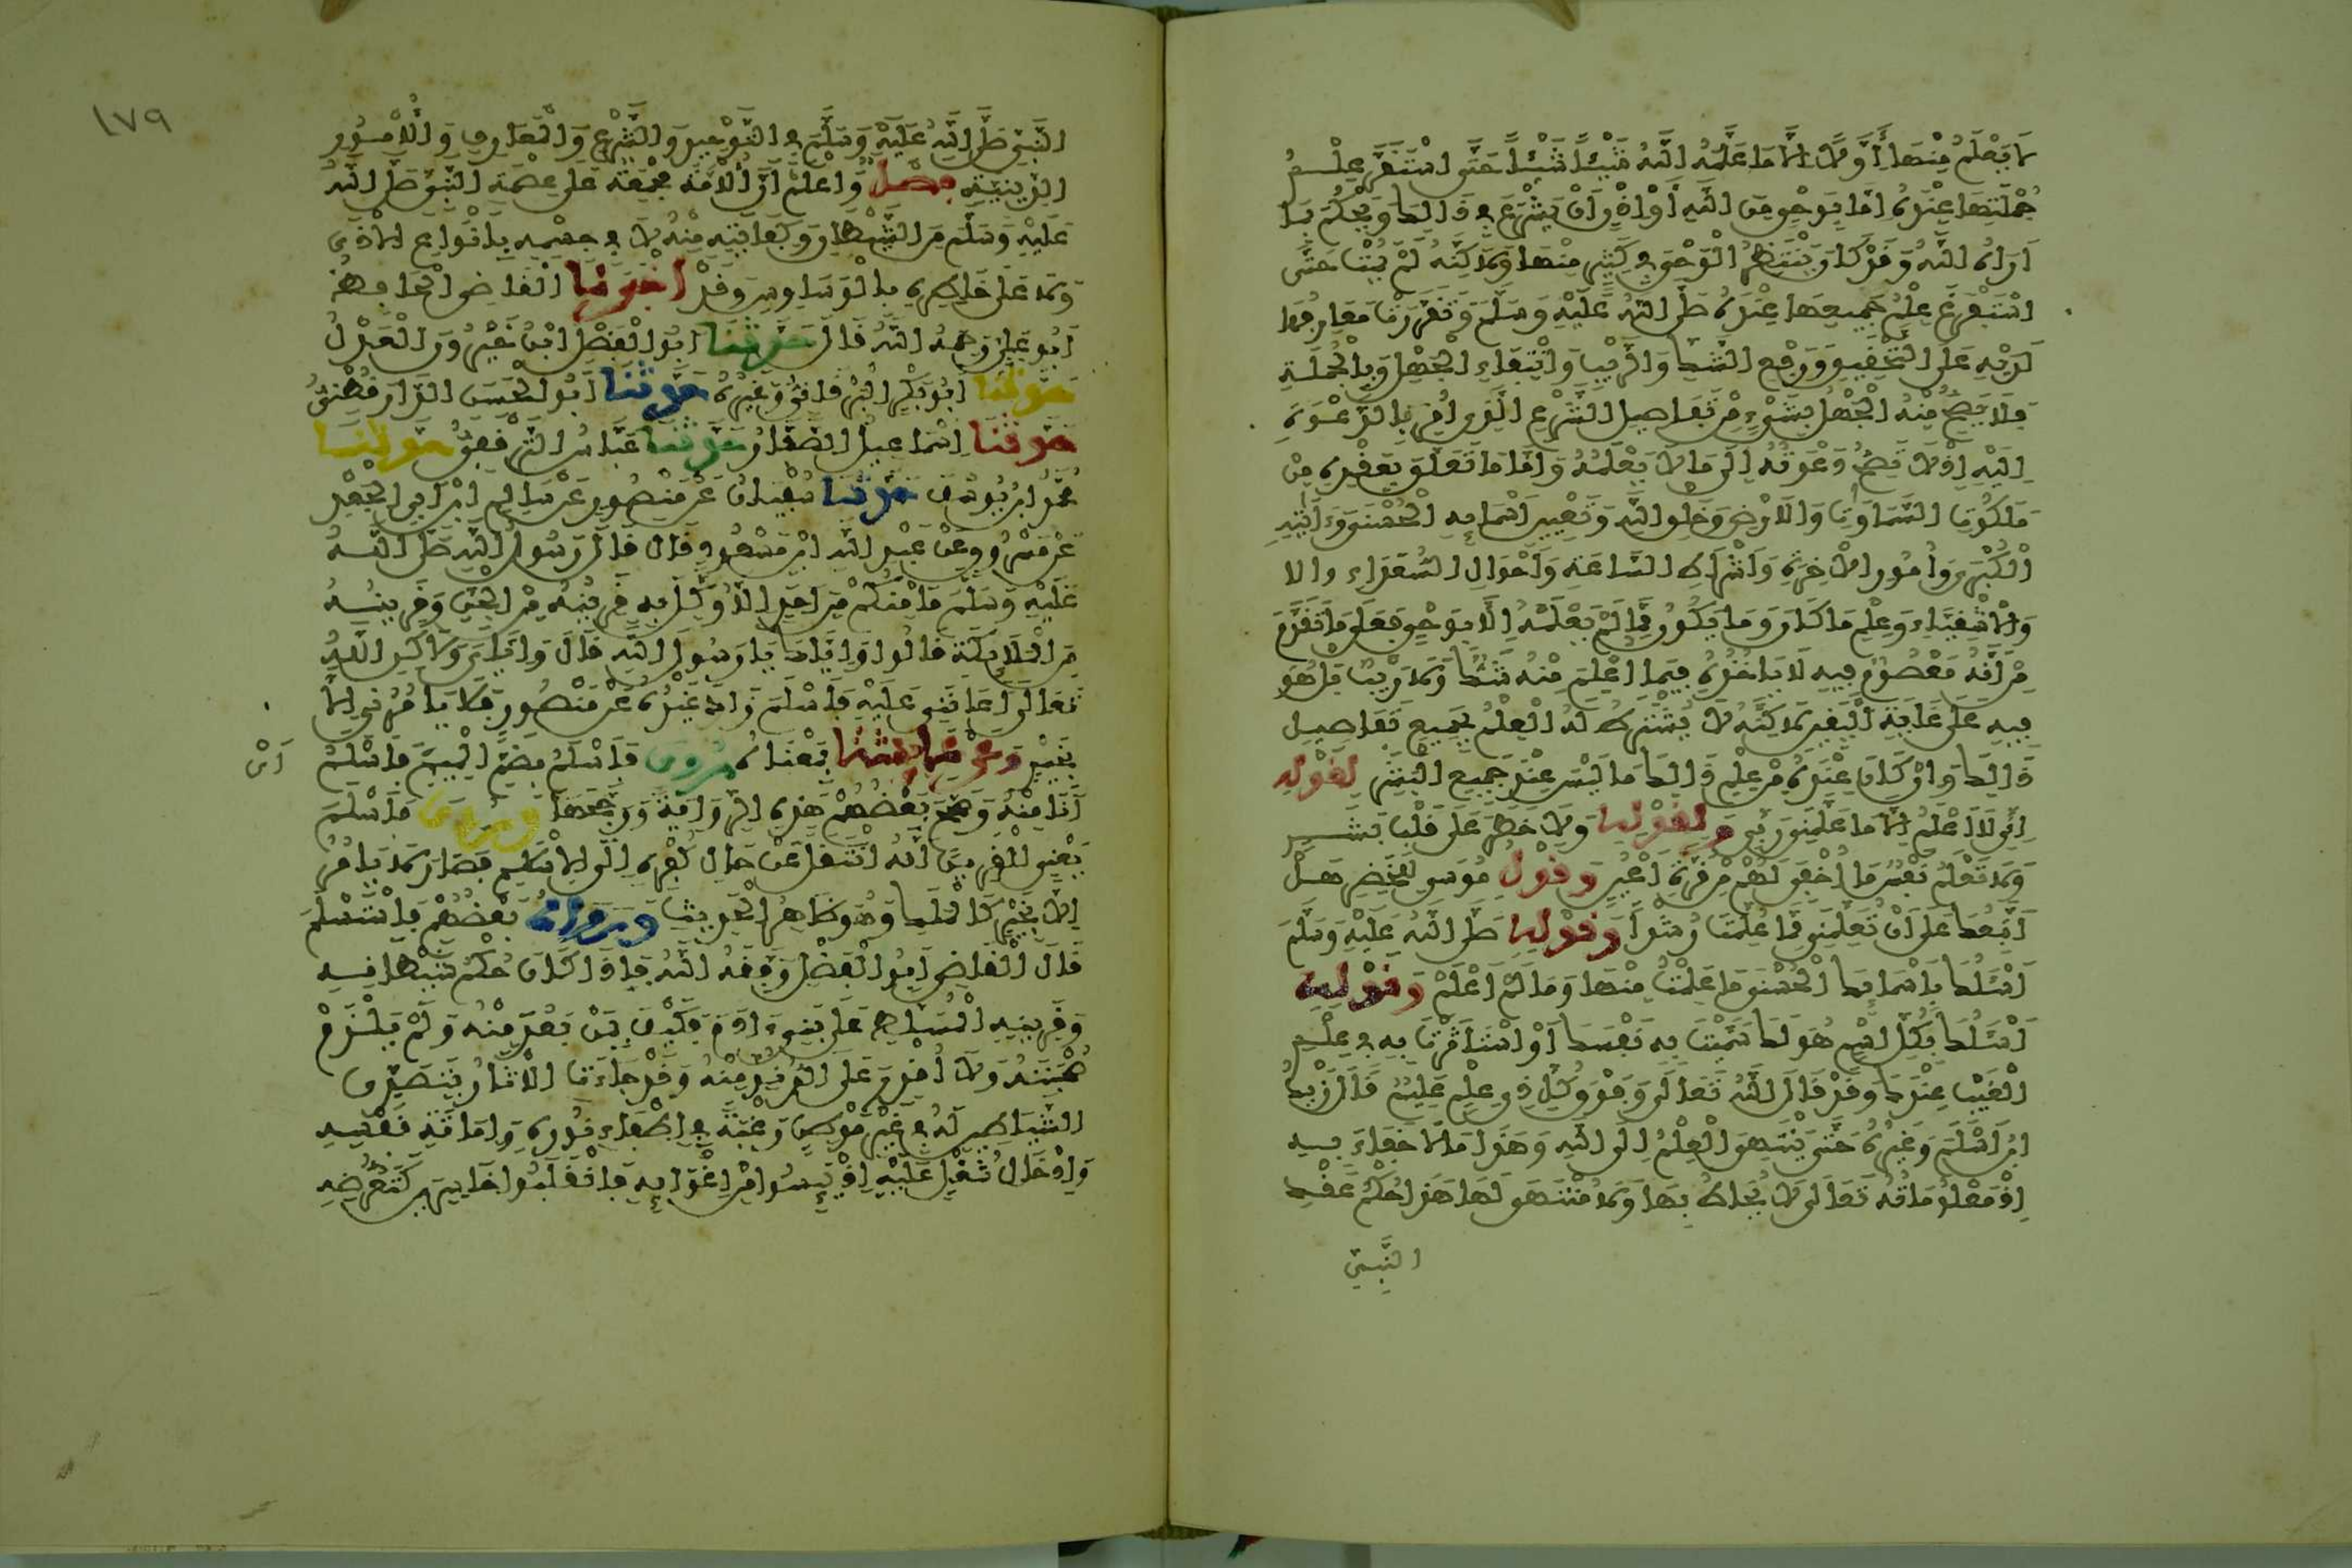 لَا يَعْلَمُ مِنْهَا أَوَّلًا إِلَّا مَا عَلَّمَهُ اللَّهُ شَيْئًا شَيْئًا حَتَّى اسْتَقَرَّ عِلْمُ
جُمْلَتِهَا عِنْدَهُ إِمَّا بِوَحْيٍ مِنَ اللَّهِ أَوْ إِذْنٍ أَنْ يَشْرَعَ فِي ذَالِكَ وَيَحْكُمَ بِمَا
أَرَاهُ اللَّهُ وَقَدْ كَانَ يَنْتَظِرُ الْوَحْيَ فِي كَثِيرٍ مِنْهَا وَلَاكِنَّهُ لَمْ يَمُتْ حَتَّى
اسْتَفْرَغَ عِلْمَ جَمِيعِهَا عِنْدَهُ صَلَّى اللَّهُ عَلَيْهِ وَسَلَّمَ وَتَقَرَّرَتْ مَعَارِفُهَا
لَدَيْهِ عَلَى التَّحْقِيقِ وَرَفْعِ الشَّكِّ وَالرَّيْبِ وَانْتِفَاءِ الْجَهْلِ وَبِالْجُمْلَةِ
فَلَا يَصِحُّ مِنْهُ الْجَهْلُ بِشَيْءٍ مِنْ تَفَاصِيلِ الشَّرْعِ الَّذِي أُمِرَ بِالدَّعْوَةِ
إِلَيْهِ إِذْ لَا تَصِحُّ دَعْوَتُهُ إِلَى مَا لَا يَعْلَمُهُ وَأَمَّا مَا تَعَلَّقَ بِعَقْدِهِ مِنْ
مَلَكُوتِ السَّمَاوَاتِ وَالْأَرْضِ وَخَلْقِ اللَّهِ وَتَعْيِينِ أَسْمَائِهِ الْحُسْنَى وَءَايَاتِهِ
الْكُبْرَى وَأُمُورِ الْآخِرَةِ وَأَشْرَاطِ السَّاعَةِ وَأَحْوَالِ السُّعَدَاءِ والا
وَالْأَشْقِيَاءِ وَعِلْمِ مَا كَانَ وَمَا يَكُونُ مِمَّا لَمْ يَعْلَمْهُ إِلَّا بِوَحْيٍ فَعَلَى مَا تَقَدَّمَ
مِنْ أَنَّهُ مَعْصُومٌ فِيهِ لَا يَأْخُذُهُ فِيمَا أُعْلِمَ مِنْهُ شَكٌّ وَلَا رَيْبٌ بَلْ هُوَ
فِيهِ عَلَى غَايَةِ الْيَقِينِ لَاكِنَّهُ لَا يُشْتَرَطُ لَهُ الْعِلْمُ بِجَمِيعِ تَفَاصِيلِ
ذَالِكَ وَإِنْ كَانَ عِنْدَهُ مِنْ عِلْمِ ذَالِكَ مَا لَيْسَ عِنْدَ جَمِيعِ الْبَشَرِ لِقَوْلِهِ
إِنِّي لَا أَعْلَمُ إِلَّا مَا عَلَّمَنِي رَبِّي وَلِقَوْلِهِ وَلَا خَطَرَ عَلَى قَلْبِ بَشَرٍ
وَلَا تَعْلَمُ نَفْسٌ مَا أُخْفِيَ لَهُمْ مِنْ قُرَّةِ أَعْيُنٍ وَقَوْلُ مُوسَى لِلْخَضِرِ هَلْ
أَتَّبِعُكَ عَلَى أَنْ تُعَلِّمَنِي مِمَّا عُلِّمْتَ رُشْدًا وَقَوْلِهِ صَلَّى اللَّهُ عَلَيْهِ وَسَلَّمَ
أَسْئَلُكَ بِأَسْمَائِكَ الْحُسْنَى مَا عَلِمْتُ مِنْهَا وَمَا لَمْ أَعْلَمْ وَقَوْلِهِ
أَسْئَلُكَ بِكُلِّ اسْمٍ هُوَ لَكَ سَمَّيْتَ بِهِ نَفْسَكَ أَوْ اسْتَأْثَرْتَ بِهِ فِي عِلْمِ
الْغَيْبِ عِنْدَكَ وَقَدْ قَالَ اللَّهُ تَعَالَى وَفَوْقَ كُلِّ ذِي عِلْمٍ عَلِيمٌ قَالَ زَيْدُ
ابْنُ أَسْلَمَ وَغَيْرُهُ حَتَّى يَنْتَهِيَ الْعِلْمُ إِلَى اللَّهِ وَهَذَا مَا لَا خَفَاءَ بِهِ
إِذْ مَعْلُومَاتُهُ تَعَالَى لَا يُحَاطُ بِهَا وَلَا مُنْتَهَى لَهَا هَذَا حُكْمُ عَقْدِ
النَّبِيِّ
١٧٩
النَّبِيِّ صَلَّى اللَّهُ عَلَيْهِ وَسَلَّمَ فِي التَّوْحِيدِ وَالشَّرْعِ وَالْمَعَارِفِ وَالْأُمُورِ
الدِّينِيَّةِ فصل وَاعْلَمْ أَنَّ الْأُمَّةَ مُجْمِعَةٌ عَلَى عِصْمَةِ النَّبِيِّ صَلَّى اللَّهُ
عَلَيْهِ وَسَلَّمَ مِنَ الشَّيْطَانِ وَكِفَايَتِهِ مِنْهُ لَا فِي جِسْمِهِ بِأَنْوَاعِ الْأَذَى
وَلَا عَلَى خَاطِرِهِ بِالْوَسَاوِسِ وَقَدْ أخبرنا الْقَاضِي الْحَافِظُ
أَبُو عَلِيٍّ رَحِمَهُ اللَّهُ قَالَ حدثنا أَبُو الْفَضْلِ ابْنُ خَيْرُونَ الْعَدْلُ
حدثنا أَبُو بَكْرٍ الْبَرْقَانِيُّ وَغَيْرُهُ حدثنا أَبُو الْحَسَنِ الدَّارَقُطْنِيُّ
حدثنا إِسْمَاعِيلُ الصَّفَّارُ حدثنا عَبَّاسُ التَّرْقُفِيُّ حدثنا
مُحَمَّدُ ابْنُ يُوسُفَ حدثنا سُفْيَانُ عَنْ مَنْصُورٍ عَنْ سَالِمِ ابْنِ أَبِي الْجَعْدِ
عَنْ مَسْرُوقٍ عَنْ عَبْدِ اللَّهِ ابْنِ مَسْعُودٍ قَالَ قَالَ رَسُولُ اللَّهِ صَلَّى اللَّهُ
عَلَيْهِ وَسَلَّمَ مَا مِنْكُمْ مِنْ أَحَدٍ إِلَّا وُكِّلَ بِهِ قَرِينُهُ مِنَ الْجِنِّ وَقَرِينُهُ
مِنَ الْمَلَائِكَةِ قَالُوا وَإِيَّاكَ يَا رَسُولَ اللَّهِ قَالَ وَإِيَّايَ وَلَاكِنَّ اللَّهَ
تَعَالَى أَعَانَنِي عَلَيْهِ فَأَسْلَمَ زَادَ غَيْرُهُ عَنْ مَنْصُورٍ فَلَا يَأْمُرُنِي إِلَّا
بِخَيْرٍ وعن عائشة بِمَعْنَاهُ روي فَأَسْلَمُ بِضَمِّ الْمِيمِ فَأَسْلَمُ أَيْ
أَنَا مِنْهُ وَصَحَّحَ بَعْضُهُمْ هَذِهِ الرِّوَايَةَ وَرَجَّحَهَا وروي فَأَسْلَمَ
يَعْنِي الْقَرِينَ أَنَّهُ انْتَقَلَ عَنْ حَالِ كُفْرِهِ إِلَى الْإِسْلَامِ فَصَارَ لَا يَأْمُرُ
إِلَّا بِخَيْرٍ كَالْمَلَكِ وَهُوَ ظَاهِرُ الْحَدِيثِ ورواه بَعْضُهُمْ فَاسْتَسْلَمَ
قَالَ الْقَاضِي أَبُو الْفَضْلِ وَفَّقَهُ اللَّهُ فَإِذَا كَانَ حُكْمُ شَيْطَانِهِ
وَقَرِينِهِ الْمُسَلَّطِ عَلَى بَنِي ءَادَمَ فَكَيْفَ بِمَنْ بَعُدَ مِنْهُ وَلَمْ يَلْزَمْ
صُحْبَتَهُ وَلَا أُقْدِرَ عَلَى الدُّنُوِّ مِنْهُ وَقَدْ جَاءَتِ الْآثَارُ بِتَصَدِّي
الشَّيَاطِينِ لَهُ فِي غَيْرِ مَوْطِنٍ رَغْبَةً فِي إِطْفَاءِ نُورِهِ وَإِمَاتَةِ نَفْسِهِ
وَإِدْخَالِ شُغْلٍ عَلَيْهِ إِذْ يَئِسُوا مِنْ إِغْوَائِهِ فَانْقَلَبُوا خَاسِرِينَ كَتَعَرُّضِهِ